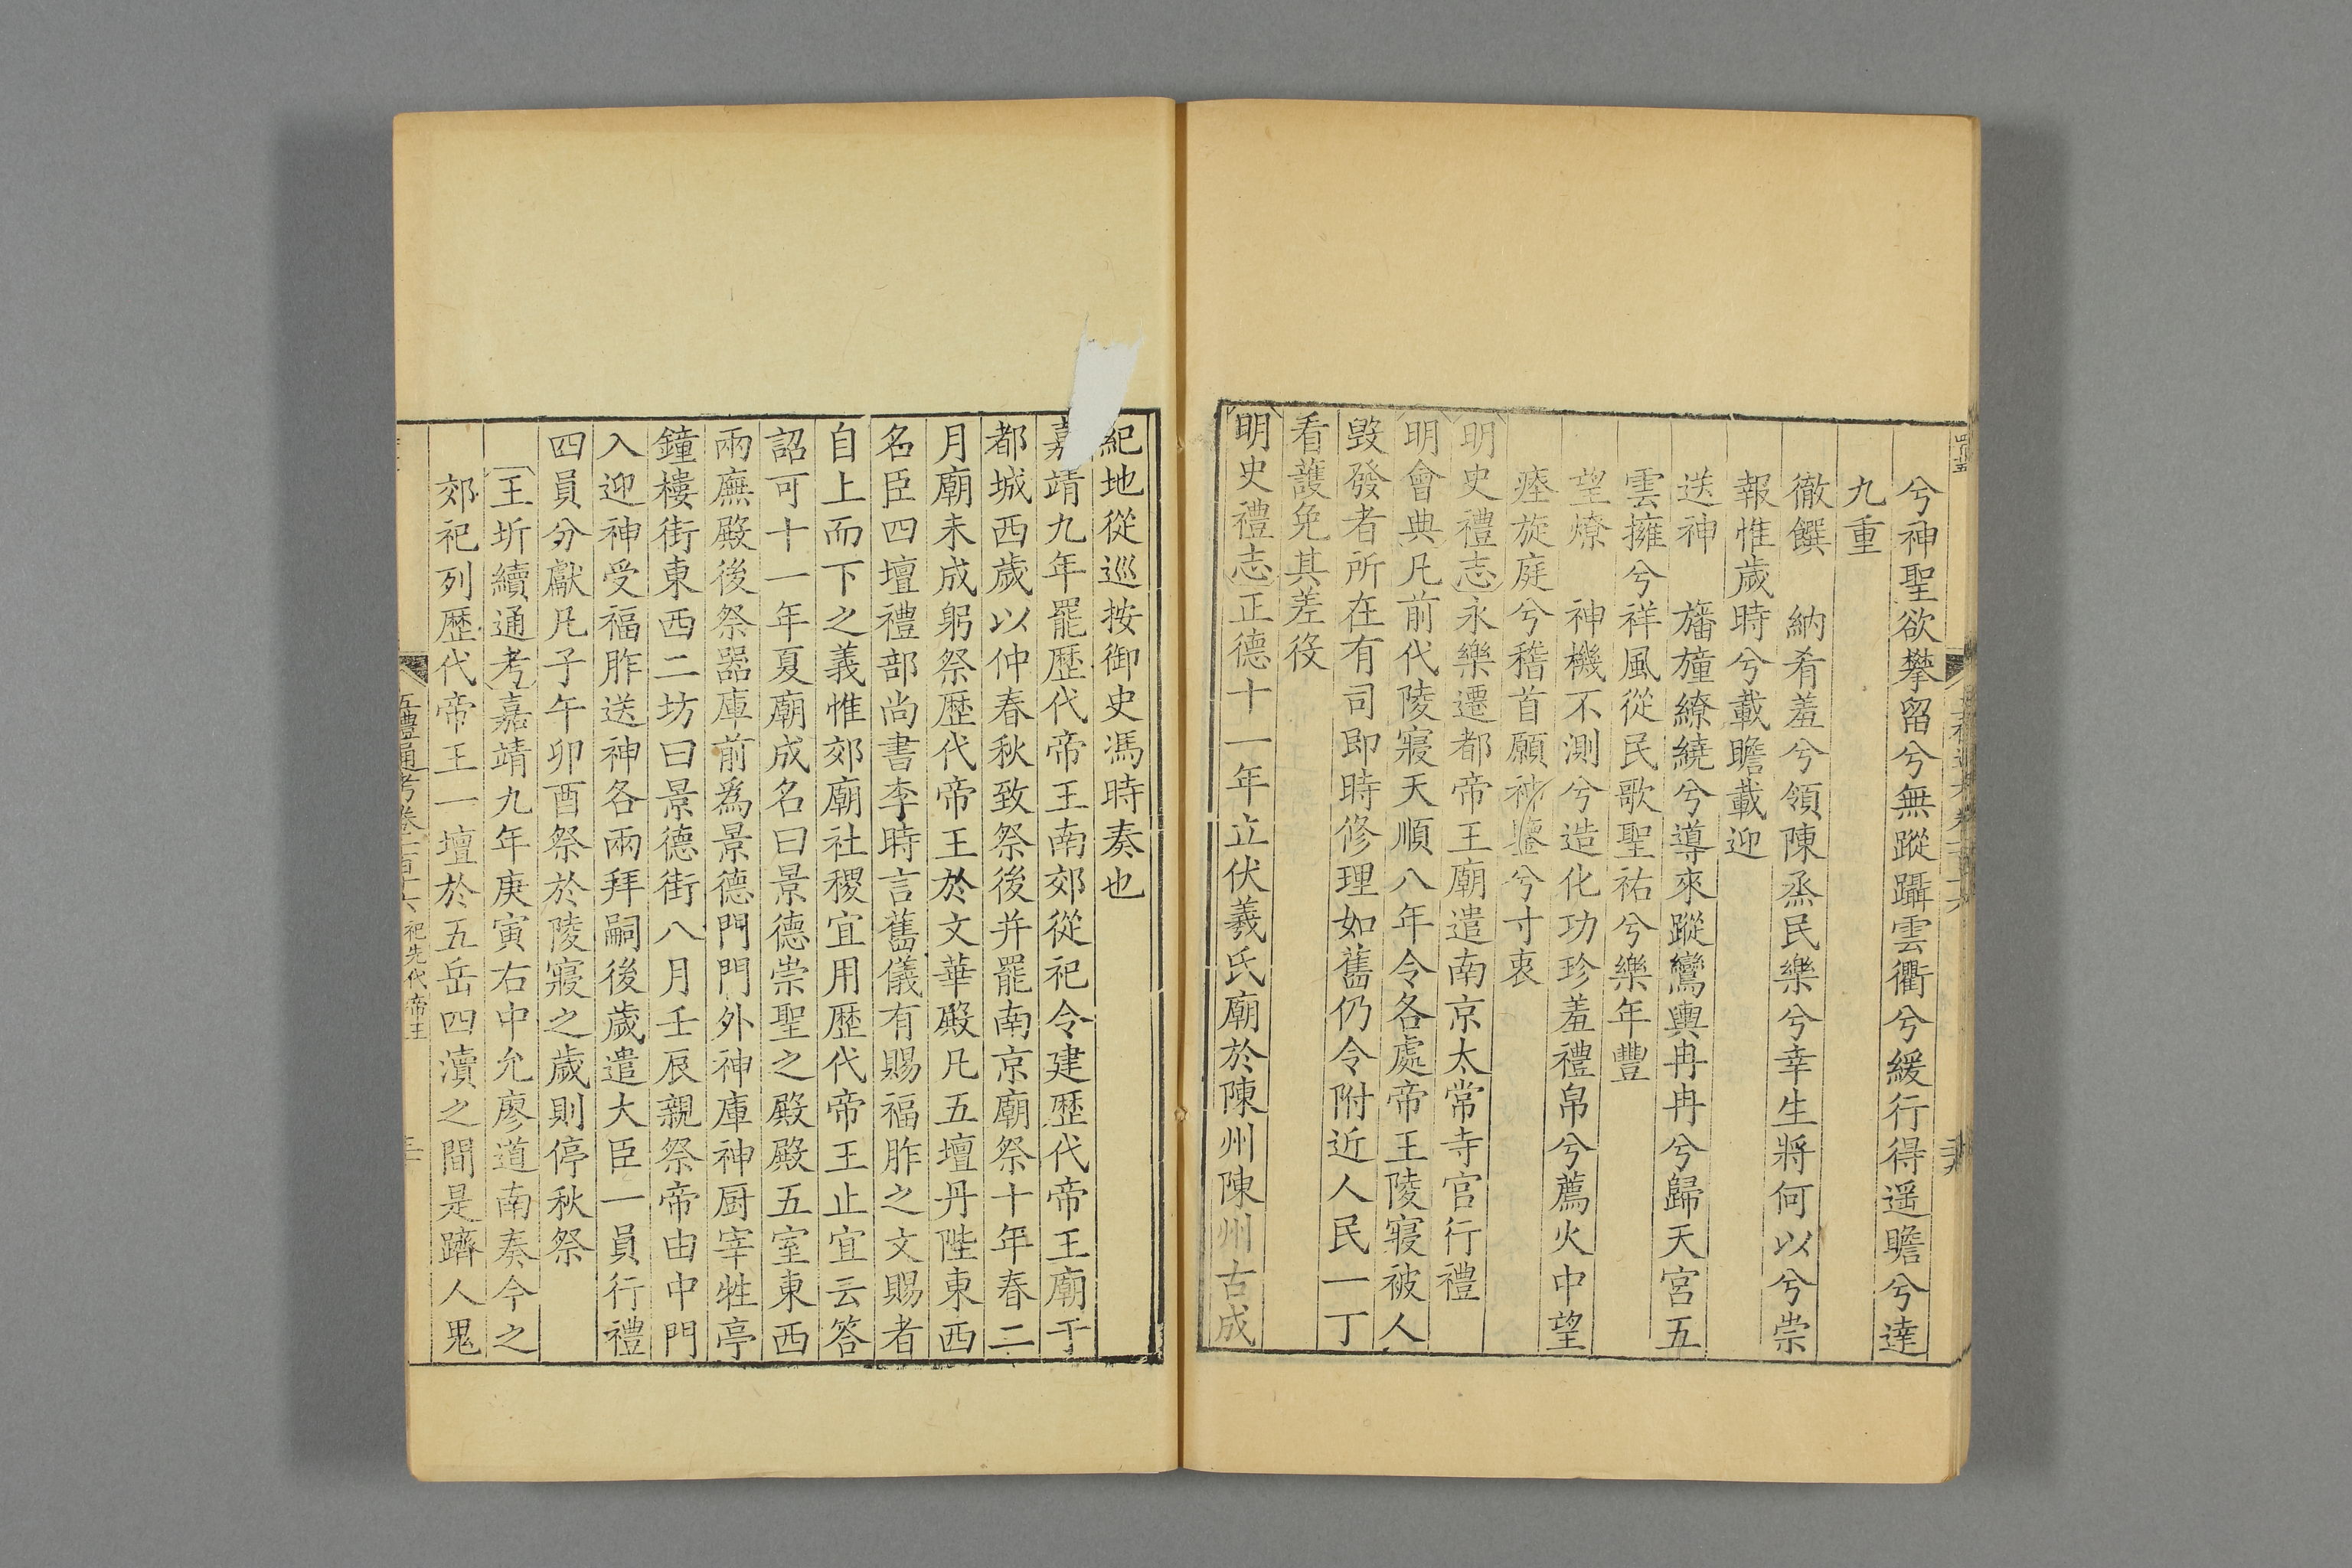 兮神聖欲攀留兮無蹤躡雲衢兮緩行得遥瞻兮達
九重
徹饌　納肴羞兮領陳烝民樂兮幸生將何以兮崇
報惟歲時兮載瞻載迎
送神　旛旜繚繞兮導來蹤鸞輿冉冉兮歸天宮五
雲擁兮祥風從民歌聖祐兮樂年豐
望燎　神機不測兮造化功珍羞禮帛兮薦火中望
瘞旋庭兮稽首願神鑒兮寸衷
明史禮志永樂遷都帝王廟遣南京太常寺官行禮
明會典凡前代陵寢天順八年令各處帝王陵寢被人
毀發者所在有司即時修理如舊仍令附近人民一丁
看護免其差役
明史禮志正德十一年立伏羲氏廟於陳州陳州古成
紀地從巡按御史馮時奏也
嘉靖九年罷歷代帝王南郊從祀令建歷代帝王廟于
都城西歲以仲春秋致祭後并罷南京廟祭十年春二
月廟未成躬祭歷代帝王於文華殿凡五壇丹陛東西
名臣四壇禮部尚書李時言舊儀有賜福胙之文賜者
自上而下之義惟郊廟社稷宜用歷代帝王止宜云答
詔可十一年夏廟成名曰景德崇聖之殿殿五室東西
兩廡殿後祭器庫前爲景德門門外神庫神厨宰牲亭
鐘樓街東西二坊曰景德街八月壬辰親祭帝由中門
入迎神受福胙送神各兩拜嗣後歲遣大臣一員行禮
四員分獻凡子午卯酉祭於陵寢之歲則停秋祭
王圻續通考嘉靖九年庚寅右中允廖道南奏今之
郊祀列歷代帝王一壇於五岳四瀆之間是躋人鬼
五禮通考卷一百十六　祀先代帝王